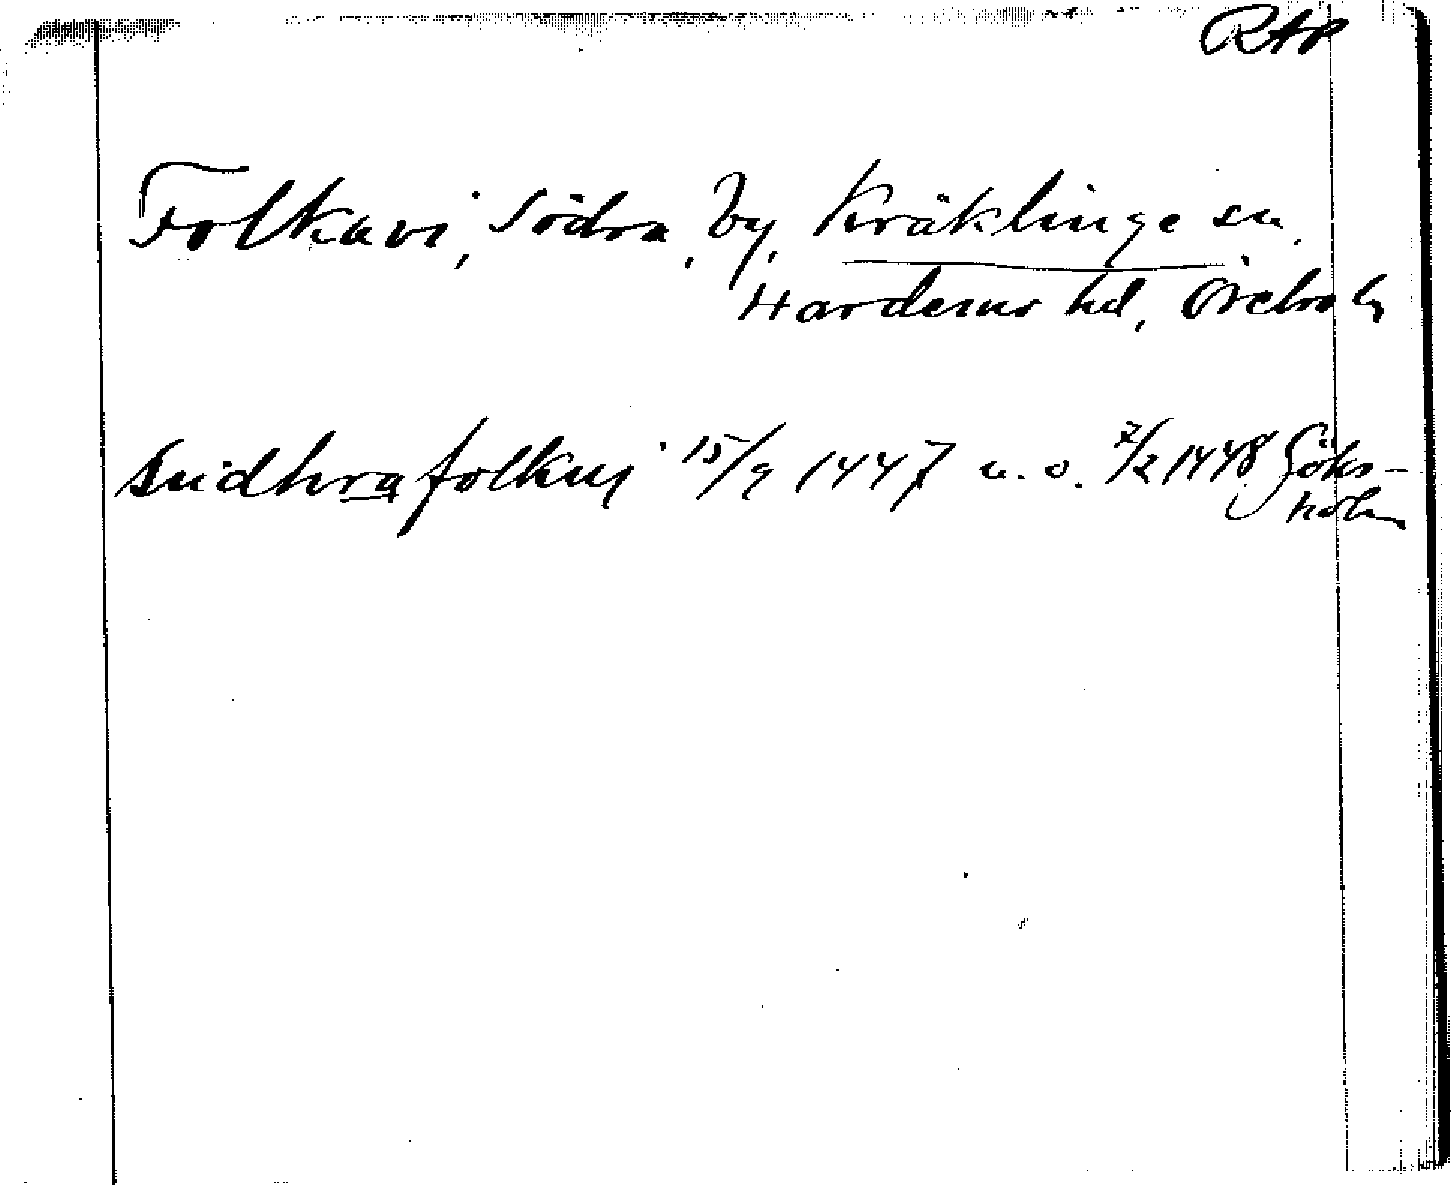 RAP
Folkavi, Södra, by, Kräklinge sn,
Hardemo hd, Örebro l,
Sudhra folkavj 15/9 1447 u. o. 7/2 1448 Göks-
holm